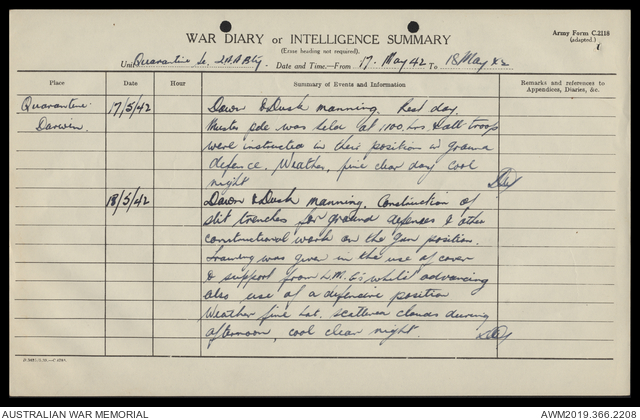 WAR DIARY or INTELLIGENCE SUMMARY
Army Form C.2118
(adapted.)
(Erase heading not required).
Unit Quarantine Date and Time.—From 17 May 42 To 18 May 42
Place Date Hour Summary of Events and Information Remarks and references to
Appendices, Diaries, &c.
Quarantine 17/5/42 Dawn & Dusk manning. Rest day.
Darwin. Muster pde was held at 1100 hrs & all troops
were instructed in their position in ground
defence. Weather, fine clear day cool
night
18/5/42 Dawn & Dusk manning. Construction of
slit trenches for ground defences & other
constructional work on the gun position.
Training was given in the use of cover
& support from L.M.G's whilst advancing
also use of a defensive position
Weather fine hot. Scattered clouds during
afternoon, cool clear night.
AUSTRALIAN WAR MEMORIAL
AWM2019.366.2208